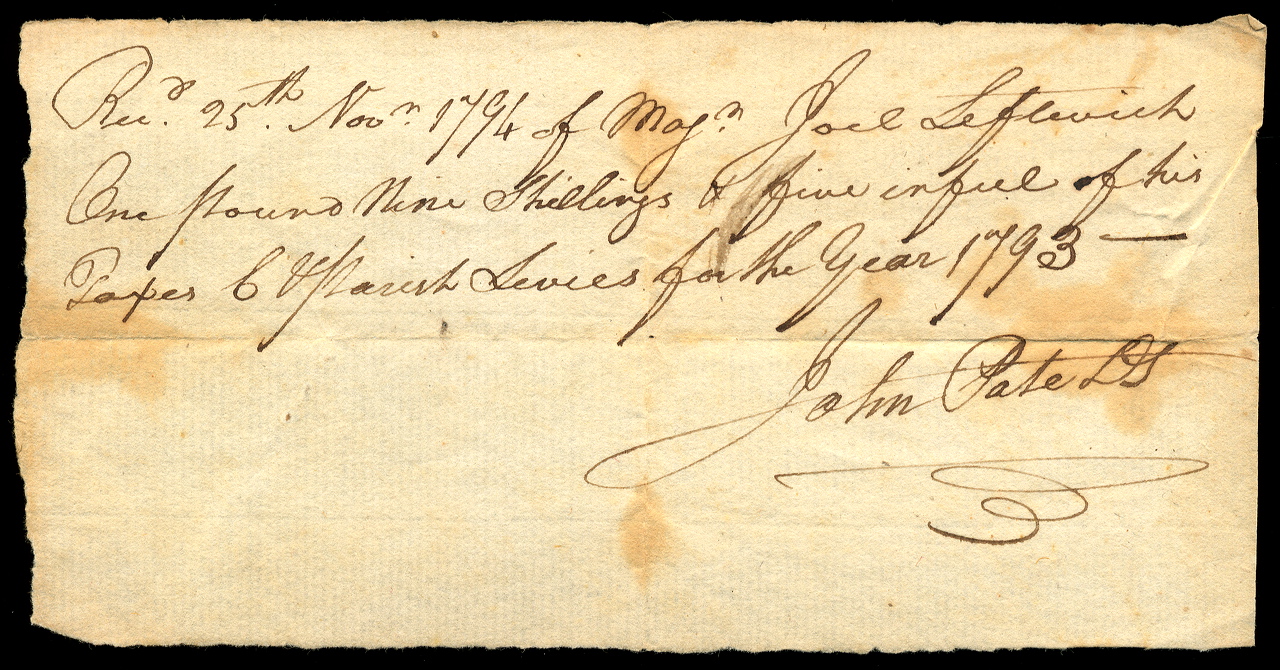 Recd. 25th. Novr 1794 of Majr Joel Leftwich
One pound Nine Shillings & five in full of his
Taxes C & parish Levies for the Year 1793 —
John Pate DS